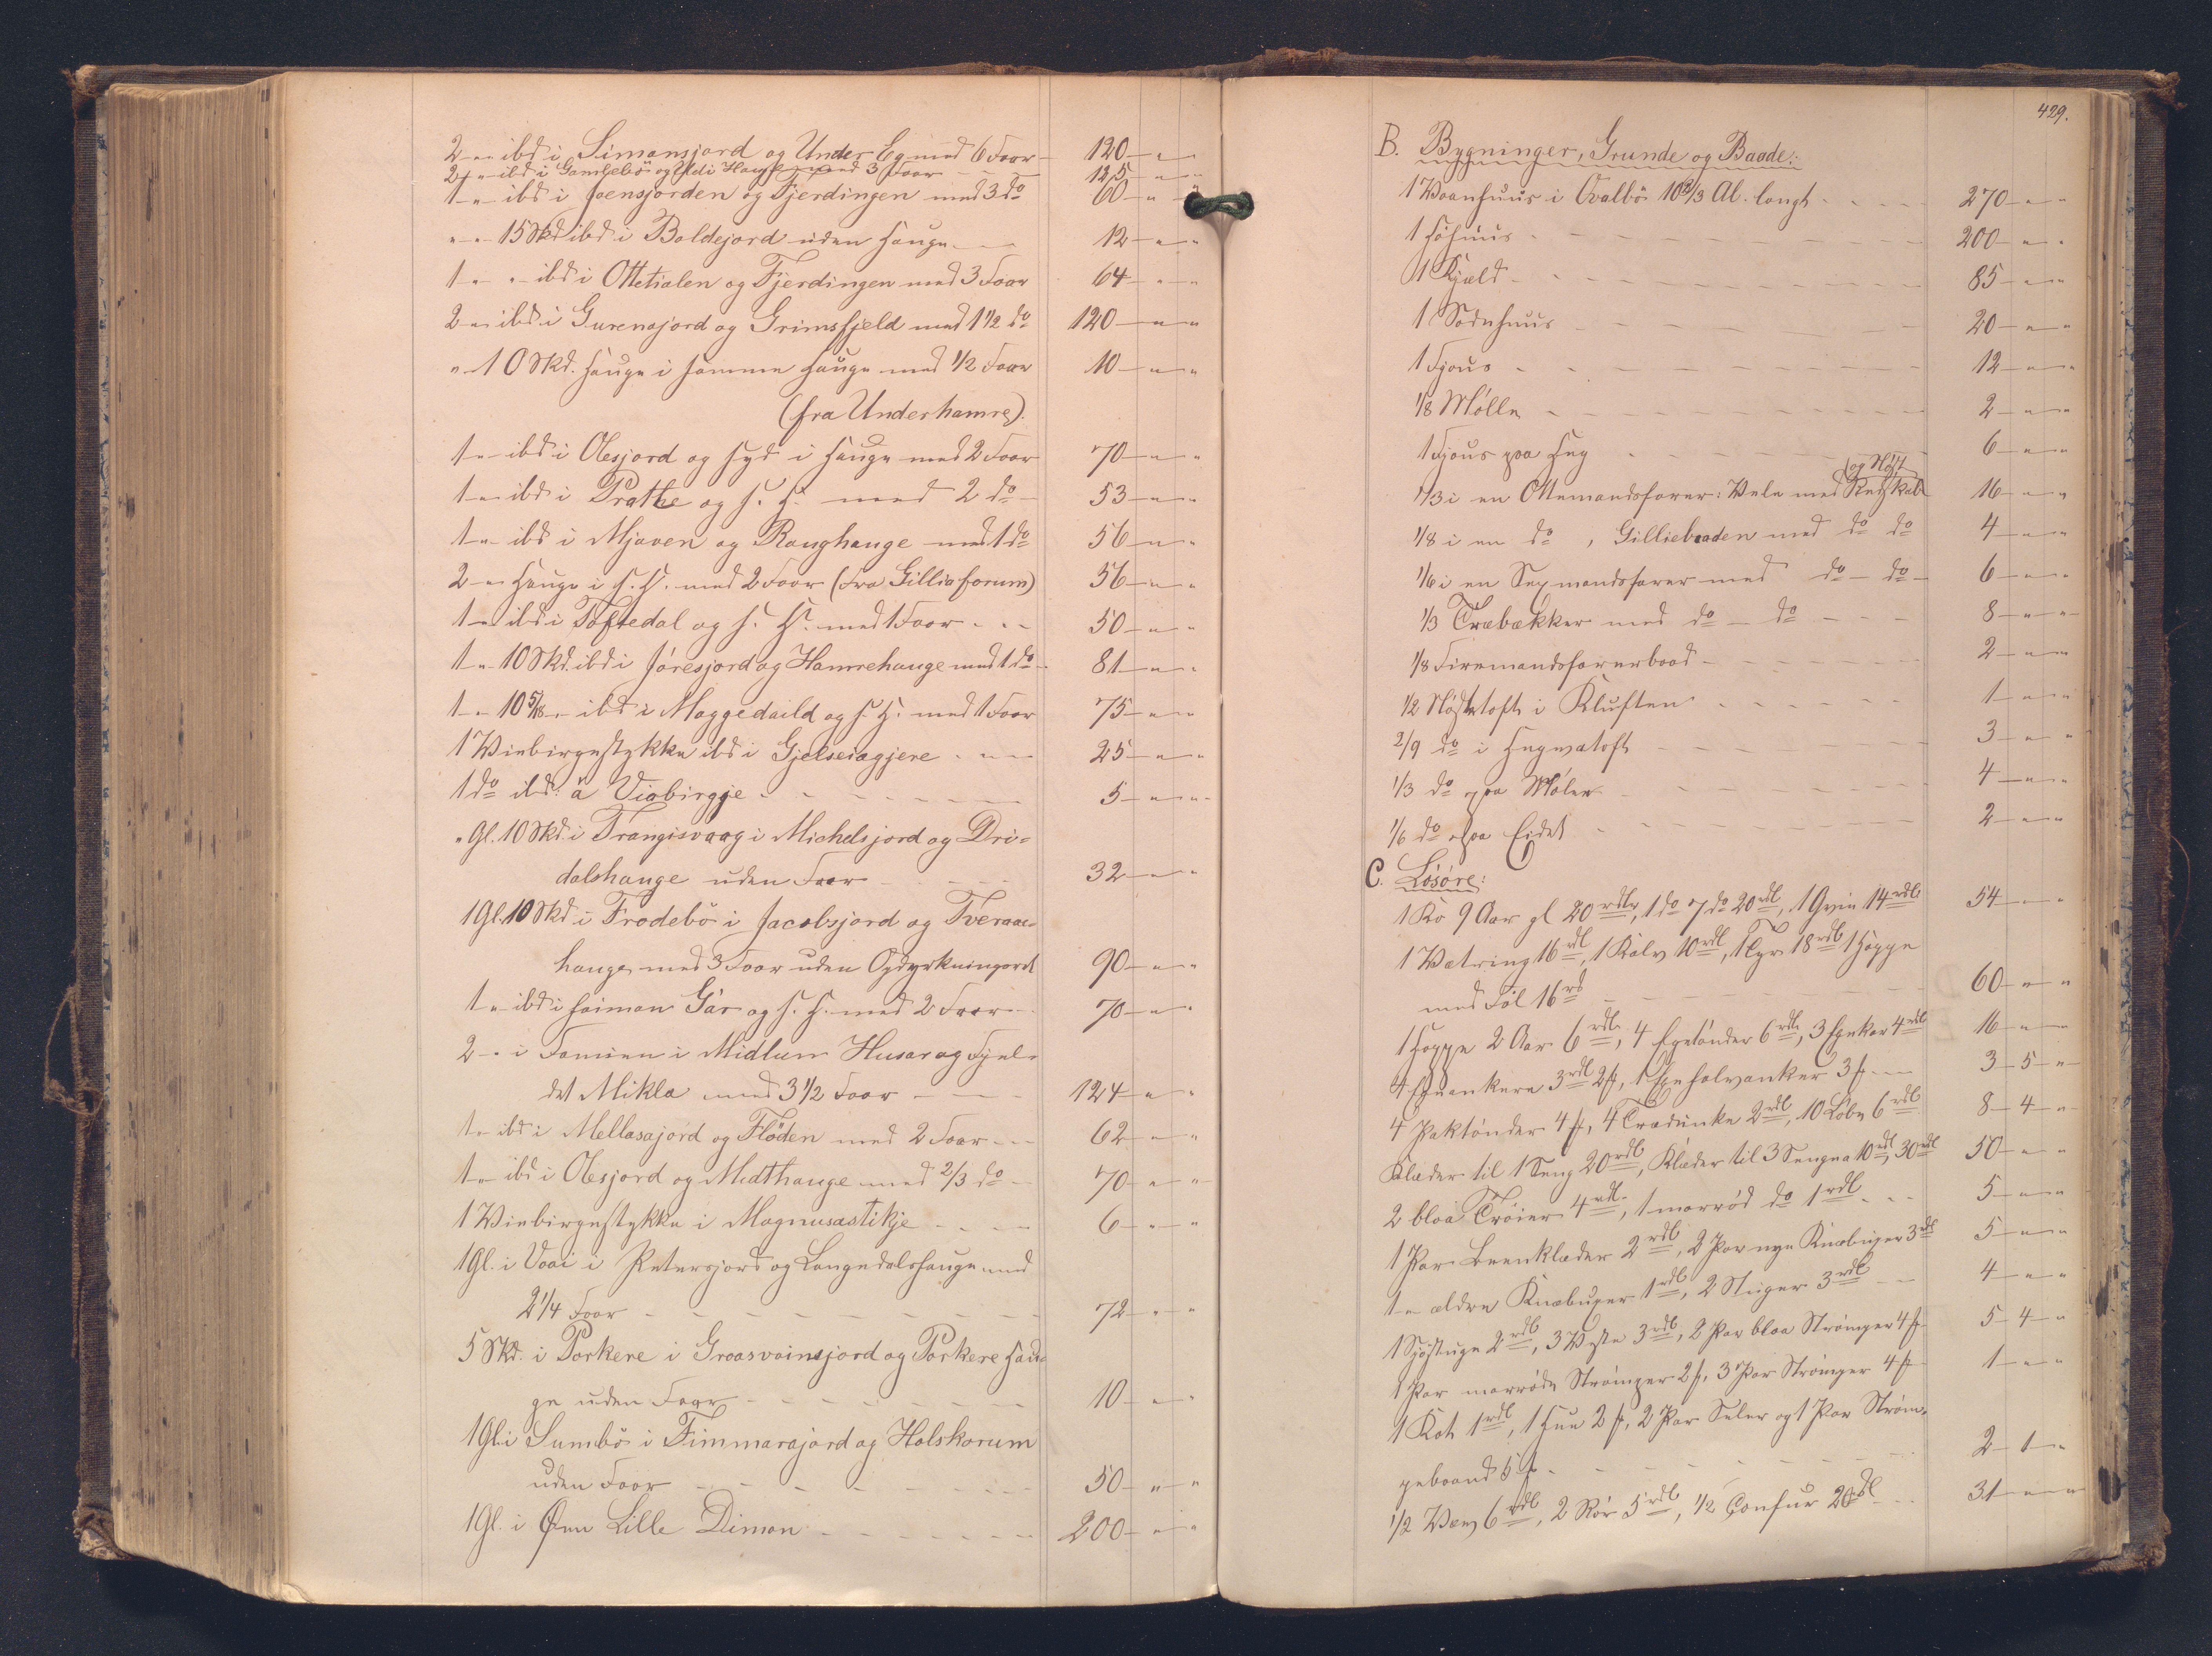 2 – " ibd i Simonsjord og Under Eg med 6 Foar – 120 – " – "
2 f – " ibd i Gamlebö og Ydi Hauge med 3 Foar – 125 – " – "
1 – " – ibd i Joensjorden og Fjerdingen med 3 do 60 – " – "
" – " – 15 Skd ibd i Boldejord uden Hauge – – 12 – " – "
1 – " – " – ibd i Ottetialen og Fjerdingen med 3 Foar 64 – " – "
2 – " ibd i Gurenajord og Grimsfjeld med 1 1/2 do 120 – " – "
" – 10 Skd. Hauge i samme Hauge med 1/2 Foar 10 – " – "
(fra Underhamre).
1 – " – ibd i Olesjord og Syd i Hauge med 2 Foar 70 – " – "
1 – " ibd i Prathe og s. H. med 2 do – 53 – " – "
1 – " – ibd i Mjaven og Ranghauge med 1 do 56 – " – "
2 – " Hauge i s. H. med 2 Foar (fra Gilliaforum) 56 – " – "
1 – " ibd i Toftedal og s. H. med 1 Foar – – – 50 – " – "
1 – " – 10 Skd. ibd i Jóresjord og Hamrehauge med 1 do – 81 – " – "
1 – " – 10 5/18 – " – ibd i Moggedaild og s. H. med 1 Foar 75 – " – "
1 Viebirgestykke ibd i Gjelseiagjere – – – 25 – " – "
1 do ibd: à Viobirgje – – – – 5 – " – "
" Gl. 10 Skd. i Trangisvaag i Michelsjord og Dri=
dalshauge uden Foar – – – 32 – " – "
1 Gl. 10 Skd i Frodebö i Jacobsjord og Tveraae=
hauge med 3 Foar uden Opdyrkningsret 90 – " – "
1 – " – ibd i Haiman Gär og s. H. med 2 Foar – 70 – " – "
2 – " i Famien i Midlum Husar og Fjel=
det Mikla med 3 1/2 Foar – – – 124 – " – "
1 – " ibd i Mellasajord og Flöden med 2 Foar – – 62 – " – "
1 – " ibd i Olesjord og Midthauge med 2/3 do – 70 – " – "
1 Viebirgestykke i Magnusastikje – – – 6 – " – "
1 Gl. i Vaai i Petersjord og Langedalshauge med
2 1/4 Foar – – – – – 72 – " – "
5 Skd. i Porkere i Groasvainsjord og Porkere Hau=
ge uden Foar – – – – – 10 – " – "
1 Gl. i Sumbö i Fimmarajord og Holskorum
uden Foar – – – – – 50 – " – "
1 Gl. i Øen Lille Dimon – – – – 200 – " – "
429.
B. Bygninger, Grunde og Baade:
1 Vaanhuus i Qvalbö 10 2/3 Al. langt – – – 270 – " – "
1 Höhuus – – – – – 200 – " – "
1 Kjeld – – – – – 85 – " – "
1 Sodnhuus – – – – – 20 – " – "
1 Fjous – – – – – 12 – " – "
1/8 Mölle – – – – – 2 – " – "
1 Fjous paa Eng – – – – 6 – " – "
(og Nöst
1/3 i en Ottemandsfarer: med Redskab 16 – " – "
1/8 i en do, Gilliebaaden med do do 4 – " – "
1/6 i en Sexmandsfarer med do – do – 6 – " – "
1/3 Træbækker med do – do – – – 8 – " – "
1/8 Firemandsfarerbaad – – – – 2 – " – "
1/2 Nöstetoft i Kluften – – – – 1 – " – "
2/9 do i – – – – 3 – " – "
1/3 do paa Mölen – – – – 4 – " – "
1/6 do paa Eidet – – – – 2 – " – "
C. Lösöre:
1 Ko 9 Aar gl 20 rdlr, 1 do 7 do 20 rdl, 1 Qvie 14 rdl 54 – " – "
1 Vetring 16 rdl, 1 Kalv 10 rdl, 1 Tyr 18 rdl 1 Hoppe
med Föl 16 rd – – – – – 60 – " – "
1 Hoppe 2 Aar 6 rdl, 4 Egetönder 6 rdl, 3 Egekar 4 rdl 16 – " – "
4 Egeankere 3 rdl 2 ß, 1 Egehalvanker 3 ß – – 3 – 5 – "
4 Paktönder 4 ß, 4 Trædunke 2 rdl, 10 Löbe 6 rdl 8 – 4 – "
Klæder til 1 Seng 20 rdl, Klæder til 3 Senge a 10 rdl, 30 rdl 50 – " – "
2 blaa Tröier 4 rdl, 1 morröd do 1 rdl – – 5 – " – "
1 Par Beenklæder 2 rdl, 2 Par nye Knæbuxer 3 rdl 5 – " – "
1 – " ældre Knæbuxer 1 rdl, 2 3 rdl – – 4 – " – "
1 2 rdl, 3 Veste 3 rdl, 2 Par blaa Strömper 4 ß 5 – 4 – "
1 Par morröde Strömper 2 ß, 3 Par Strömper 4 ß 1 – " – "
1 1 rdl, 1 Hue 2 ß, 2 Par Seler og 1 Par Ström=
pebaand 5 ß – – – – – 2 – 1 – "
1/2 6 rdl, 2 Rör 5 rdl, 1/2 20 rdl – – 31 – " – "